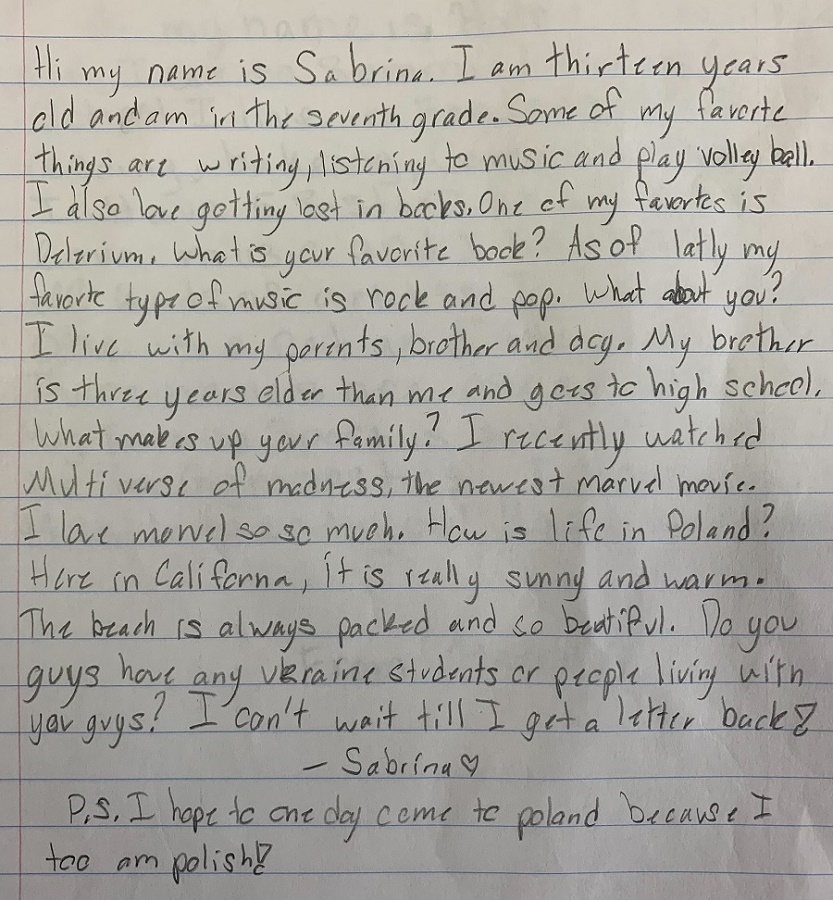 Hi my name is Sabrina. I am thirteen years
old and am in the seventh grade. Some of my favorte
things are writing, listening to music and play volley ball.
I also love getting lost in books. One of my favortes is
Delerium. What is your favorite book? As of latly my
favorte type of music is rock and pop. What about you?
I live with my parents, brother and dog. My brother
is three years older than me and goes to high school.
What makes up your family? I recently watched
Multi verse of madness, the newest marvel movie.
I love marvel so so much. How is life in Poland?
Here in Californa, it is really sunny and warm.
The beach is always packed and so beatiful. Do you
guys have any ukraine students or people living with
you guys? I can't wait till I get a letter back!
- Sabrina♡
P.S. I hope to one day come to poland because I
too am polish!